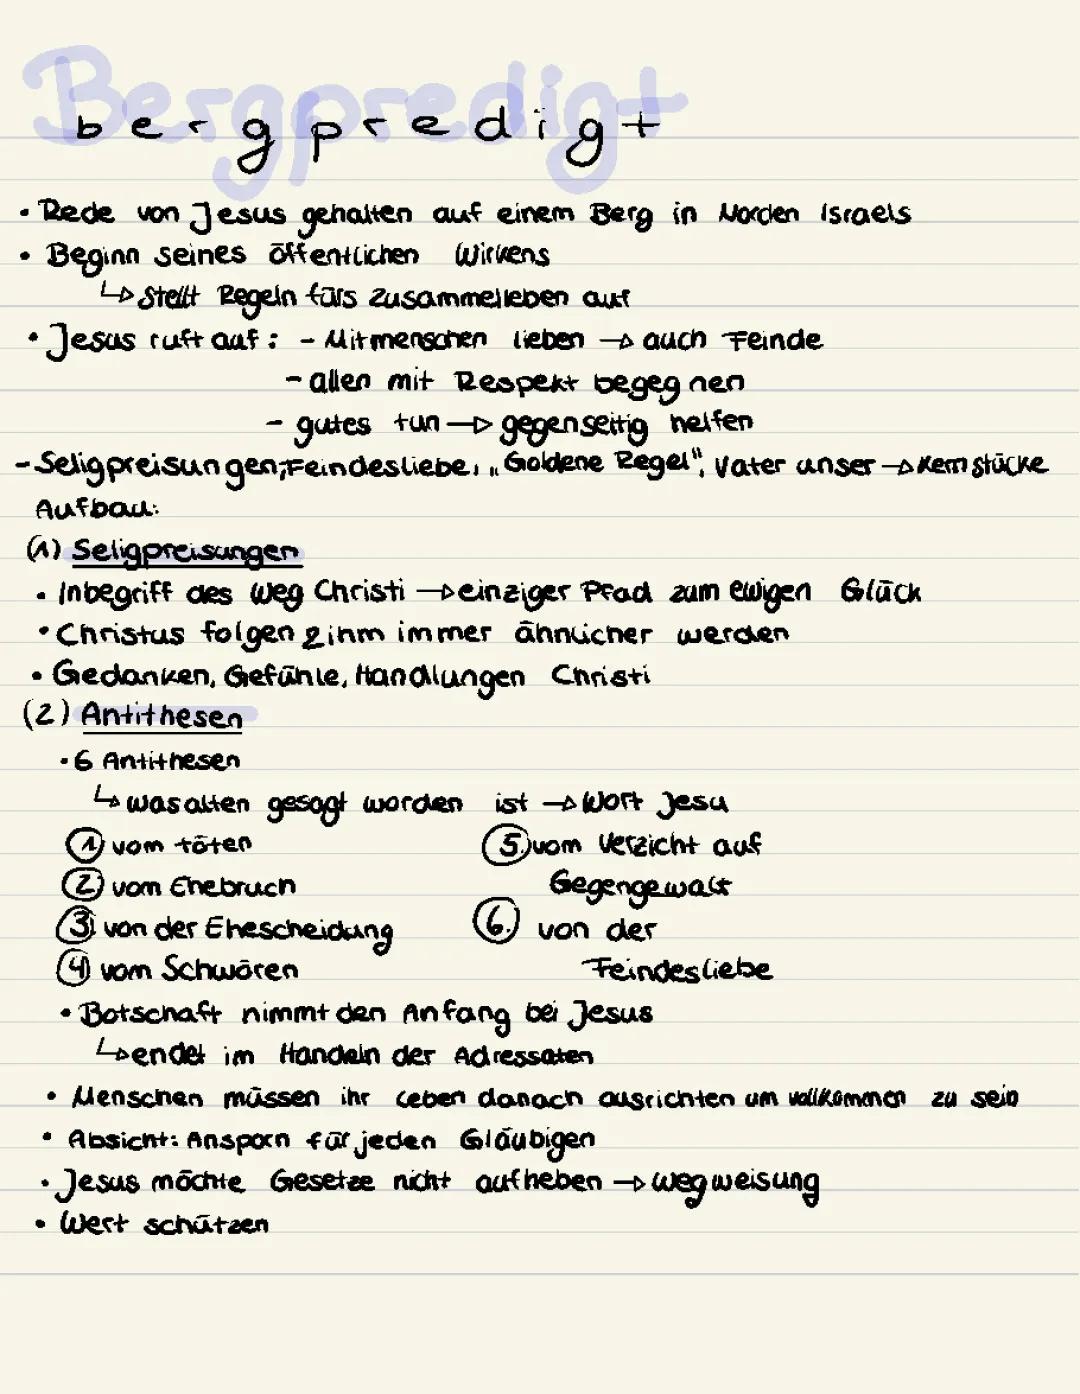 Bergpredigt
bergpredigt
• Rede von Jesus gehalten auf einem Berg in Norden Israels
• Beginn seines öffentlichen Wirkens
↳ stellt Regeln fürs zusammelleben auf
• Jesus ruft auf: - Mitmenschen lieben → auch Feinde
- allen mit Respekt begegnen
- gutes tun → gegenseitig helfen
- Seligpreisungen, Feindesliebe, „Goldene Regel", Vater unser → Kernstücke
Aufbau:
(1) Seligpreisungen
• Inbegriff des Weg Christi → einziger Pfad zum ewigen Glück
• Christus folgen & ihm immer ähnlicher werden
• Gedanken, Gefühle, Handlungen Christi
(2) Antithesen
• 6 Antithesen
↳ was alten gesagt worden ist → Wort Jesu
1 vom töten
2 vom Ehebruch
3. von der Ehescheidung
4 vom Schwören
5. vom Verzicht auf
Gegengewalt
6. von der
Feindesliebe
• Botschaft nimmt den Anfang bei Jesus
↳ endet im Handeln der Adressaten
• Menschen müssen ihr Leben danach ausrichten um vollkommen zu sein
• Absicht: Ansporn für jeden Gläubigen
• Jesus möchte Gesetze nicht aufheben → wegweisung
• Wert schützen